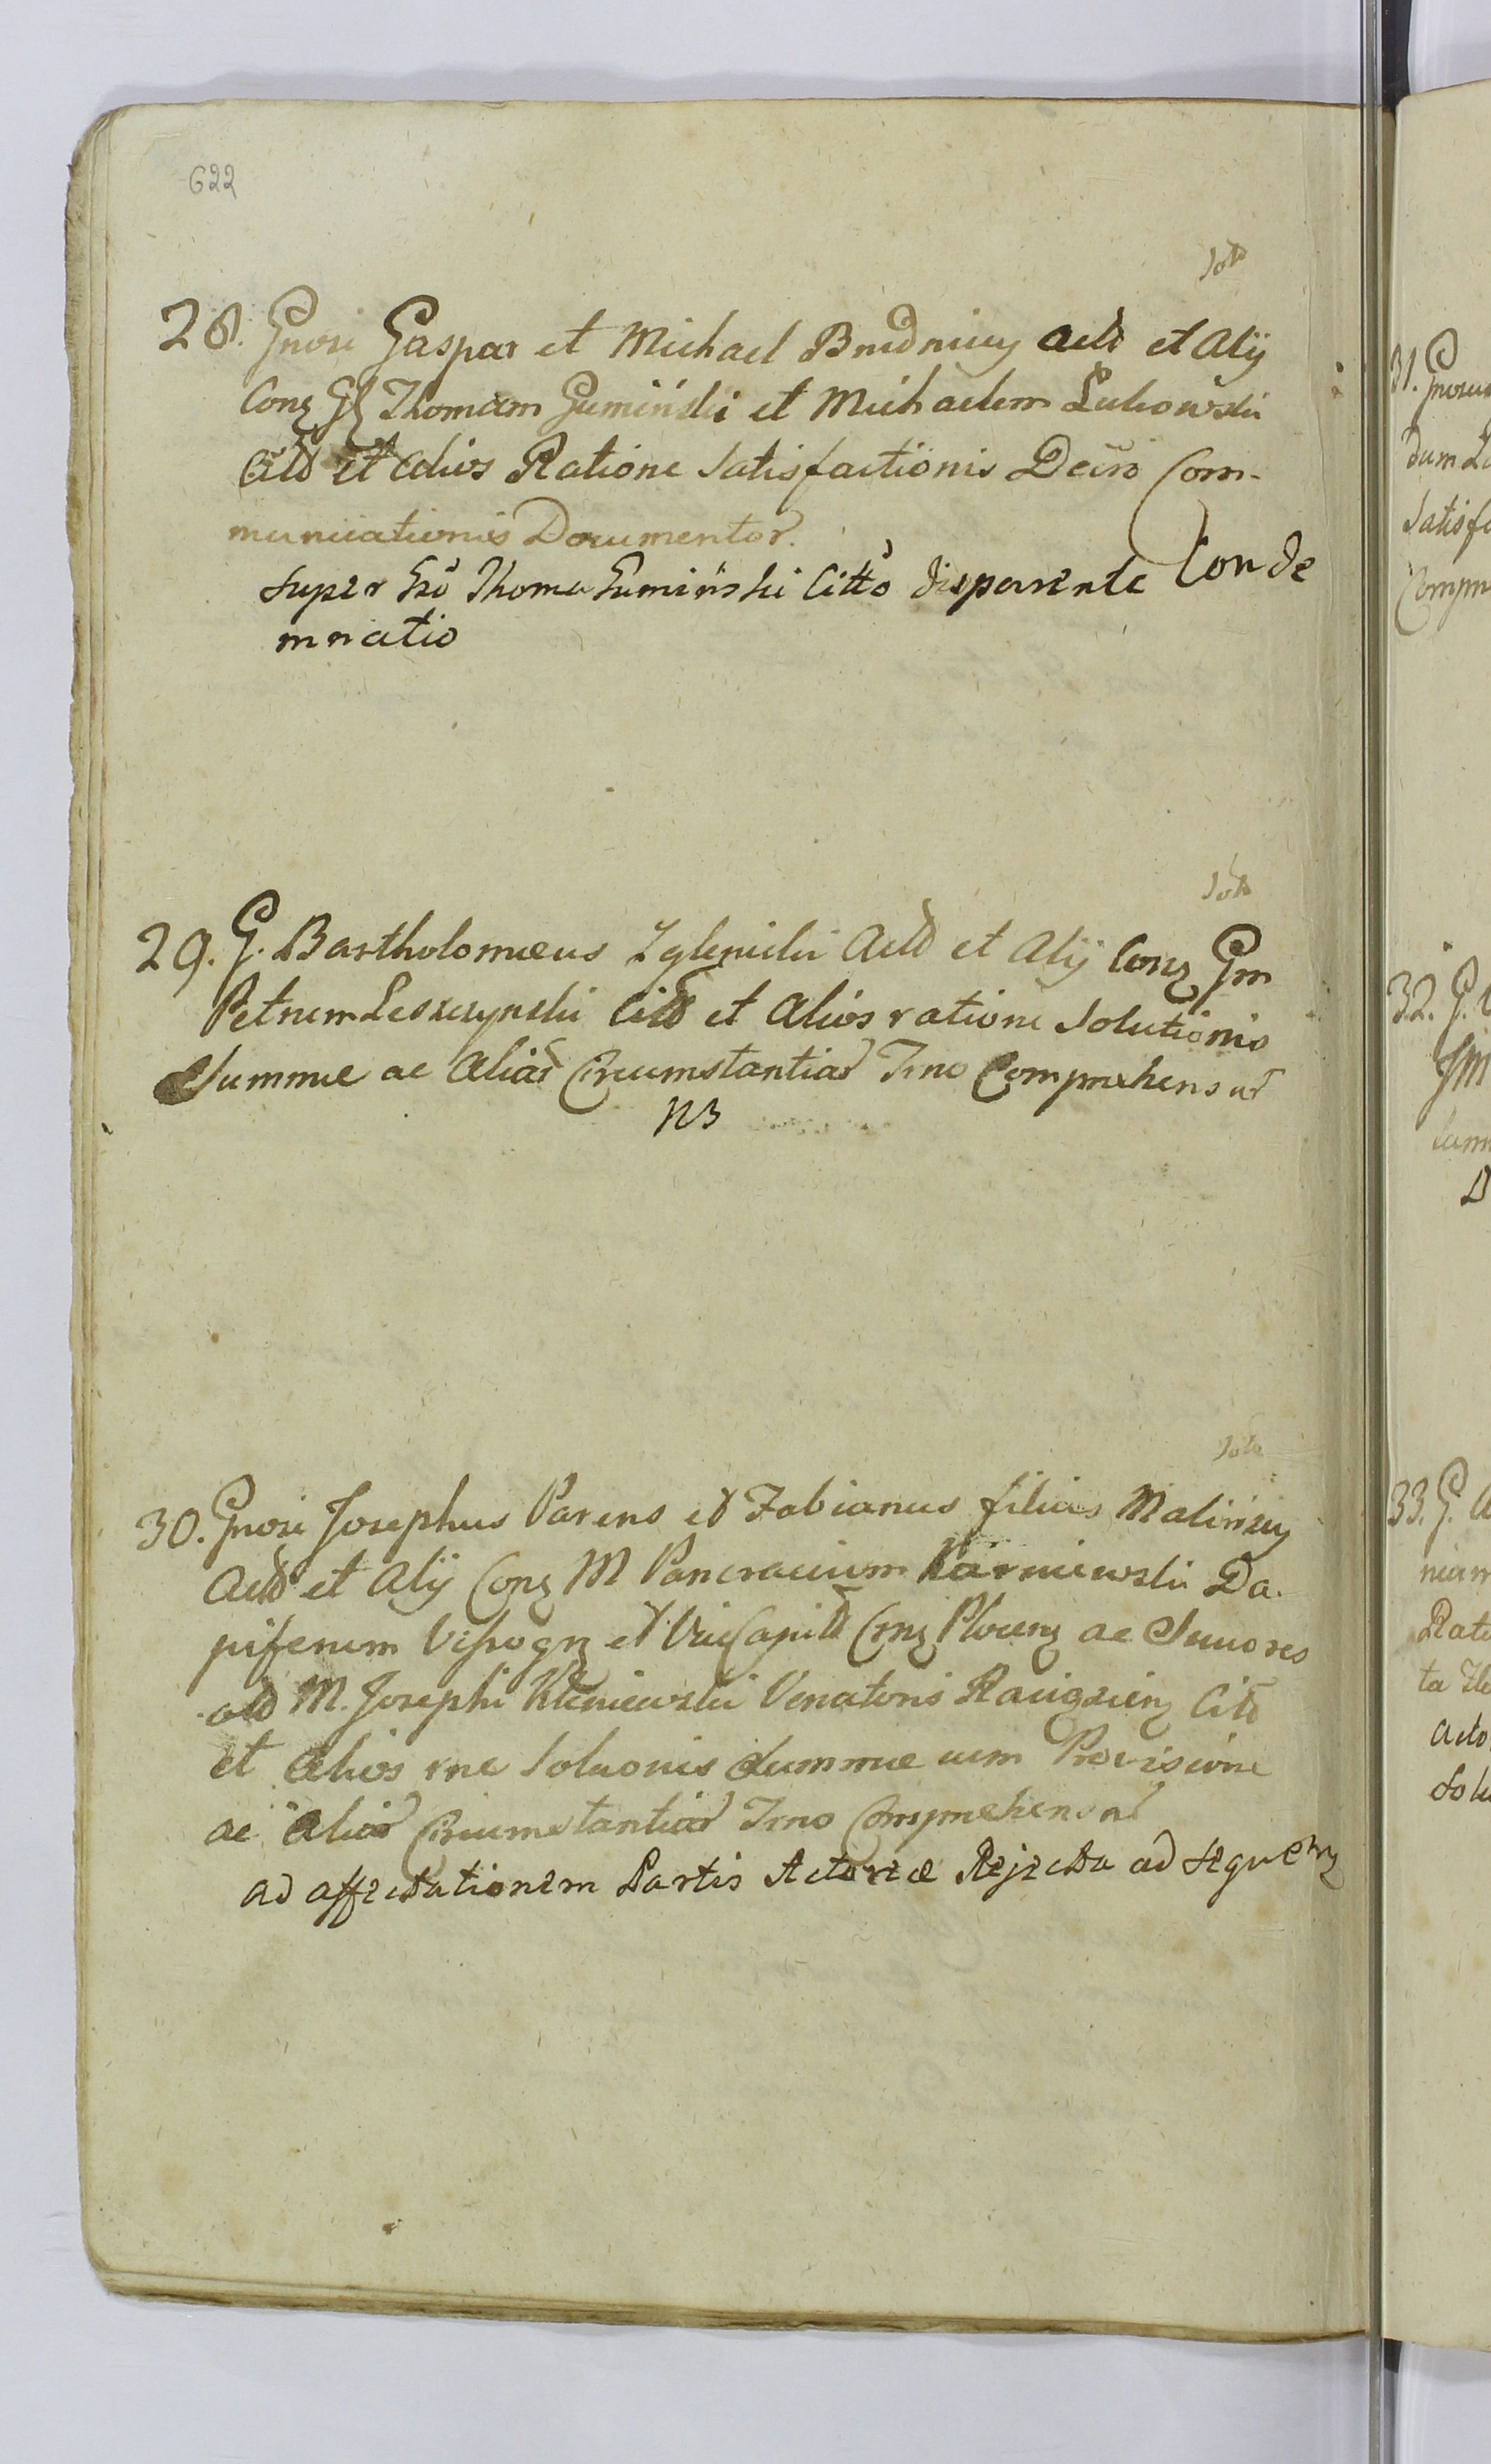 622
Solt
28. Gnosi Gaspar et Michael Brudniccy Actt et Alij
Conq Thomam Gumiński et Michaelem Łukowski
Citt et Alios Ratione Satisfactionis Decio Com-
municationis Documentor.
Super Gso Thoma Guminski Citto disparente Conde
mnatio
Solt
29. G. Bartholomæus Zglenicki Actt et Alij Conq Gm
Petrum Leszczynski Citt et Alios ratione Solutionis
Summæ ac Aliar Circumstantiar Trno Compræhensar
NB
Solt
30. Gnosi Josephus Parens et Fabianus filius Malińscy
Actt et Alij Conq M Pancracium Karniewski Da-
piferum Vissogrq et ViceCapitt Crnq Plocenq ac Succores
old M. Josephi Kleniewski Venatoris Raciąziens Citt
et Alios rne Soluonis Summæ cum Provisione
ac Aliar Circumstantiar Trno Compræhensar
ad affectationem Partis Actoreæ Rejecta ad sequenq
31. Gnosus
dum
Satisf
Compr
32. G.
33. G. A
Rati
ta
Acto
Solu